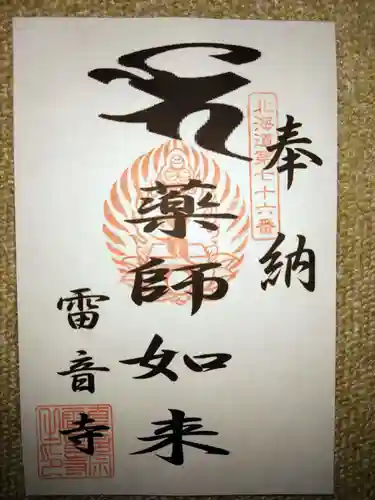 奉納
北海道第七十六番
薬師如来
雷音寺